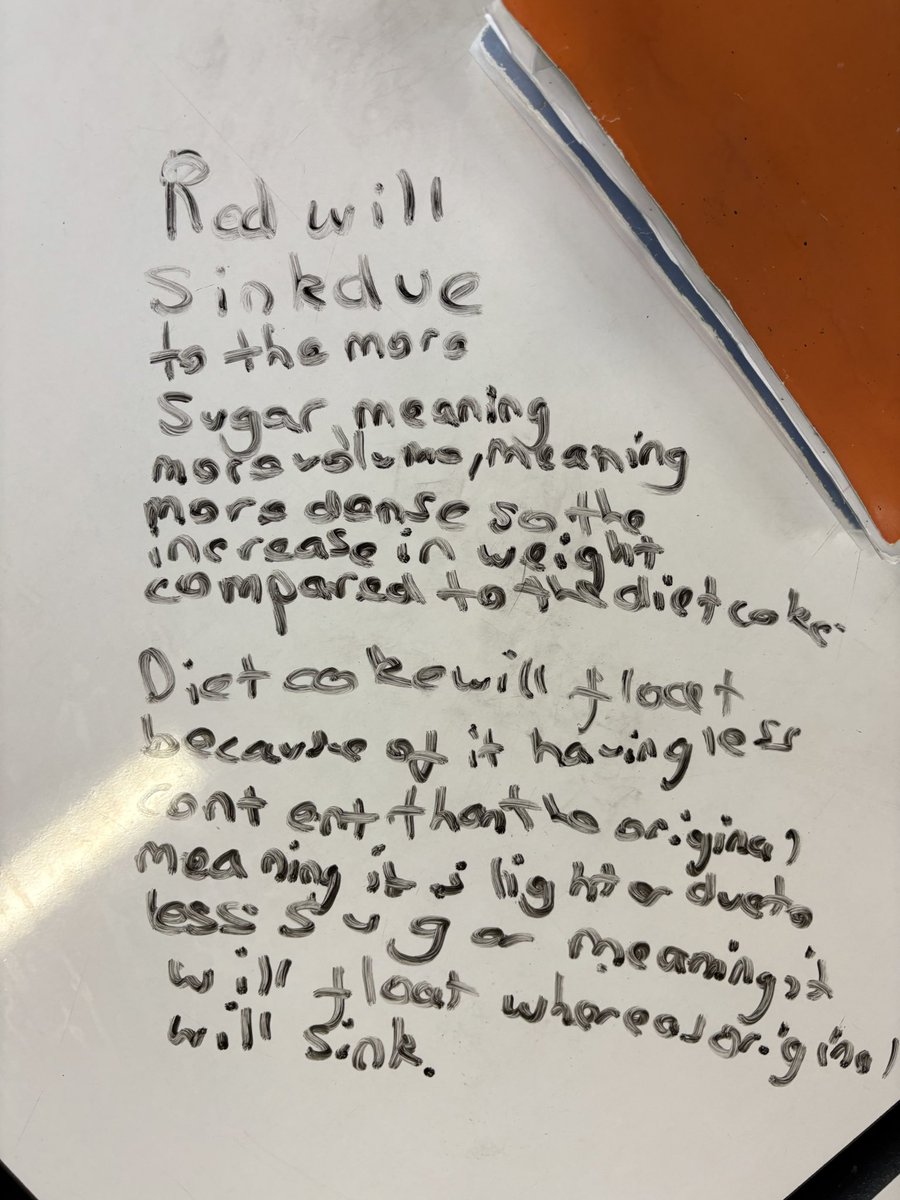 Red will
Sink due
to the more
Sugar meaning
more volume, meaning
more dense so the
increase in weight
compared to the diet coke.
Diet coke will float
because of it having less
content than the original
meaning it is lighter due to
less sugar meaning it
will float whereas original
will sink.